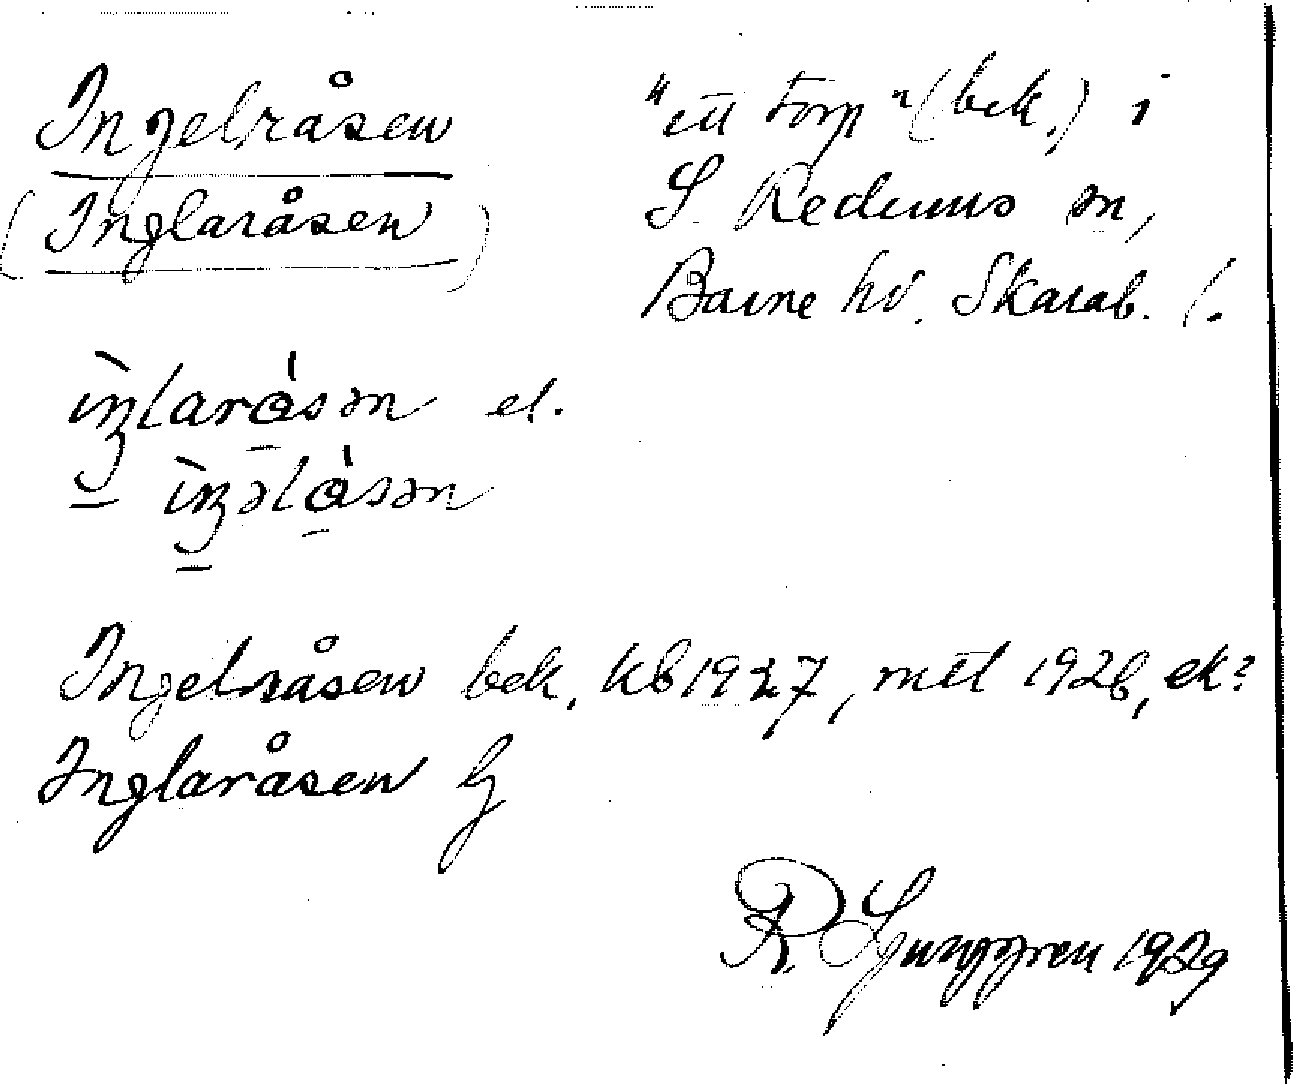 Ingelsåsen
(Inglaråsen)
"ett torp" (bek.) i
S. Kedums sn,
Barne hd. Skarab. l.
ìŋlarɑ́sən el.
ìŋəlɑ́sən
Ingelsåsen bek, kb 1927, mtl 1928, ek?
Inglaråsen Lj
R. Ljunggren 1929